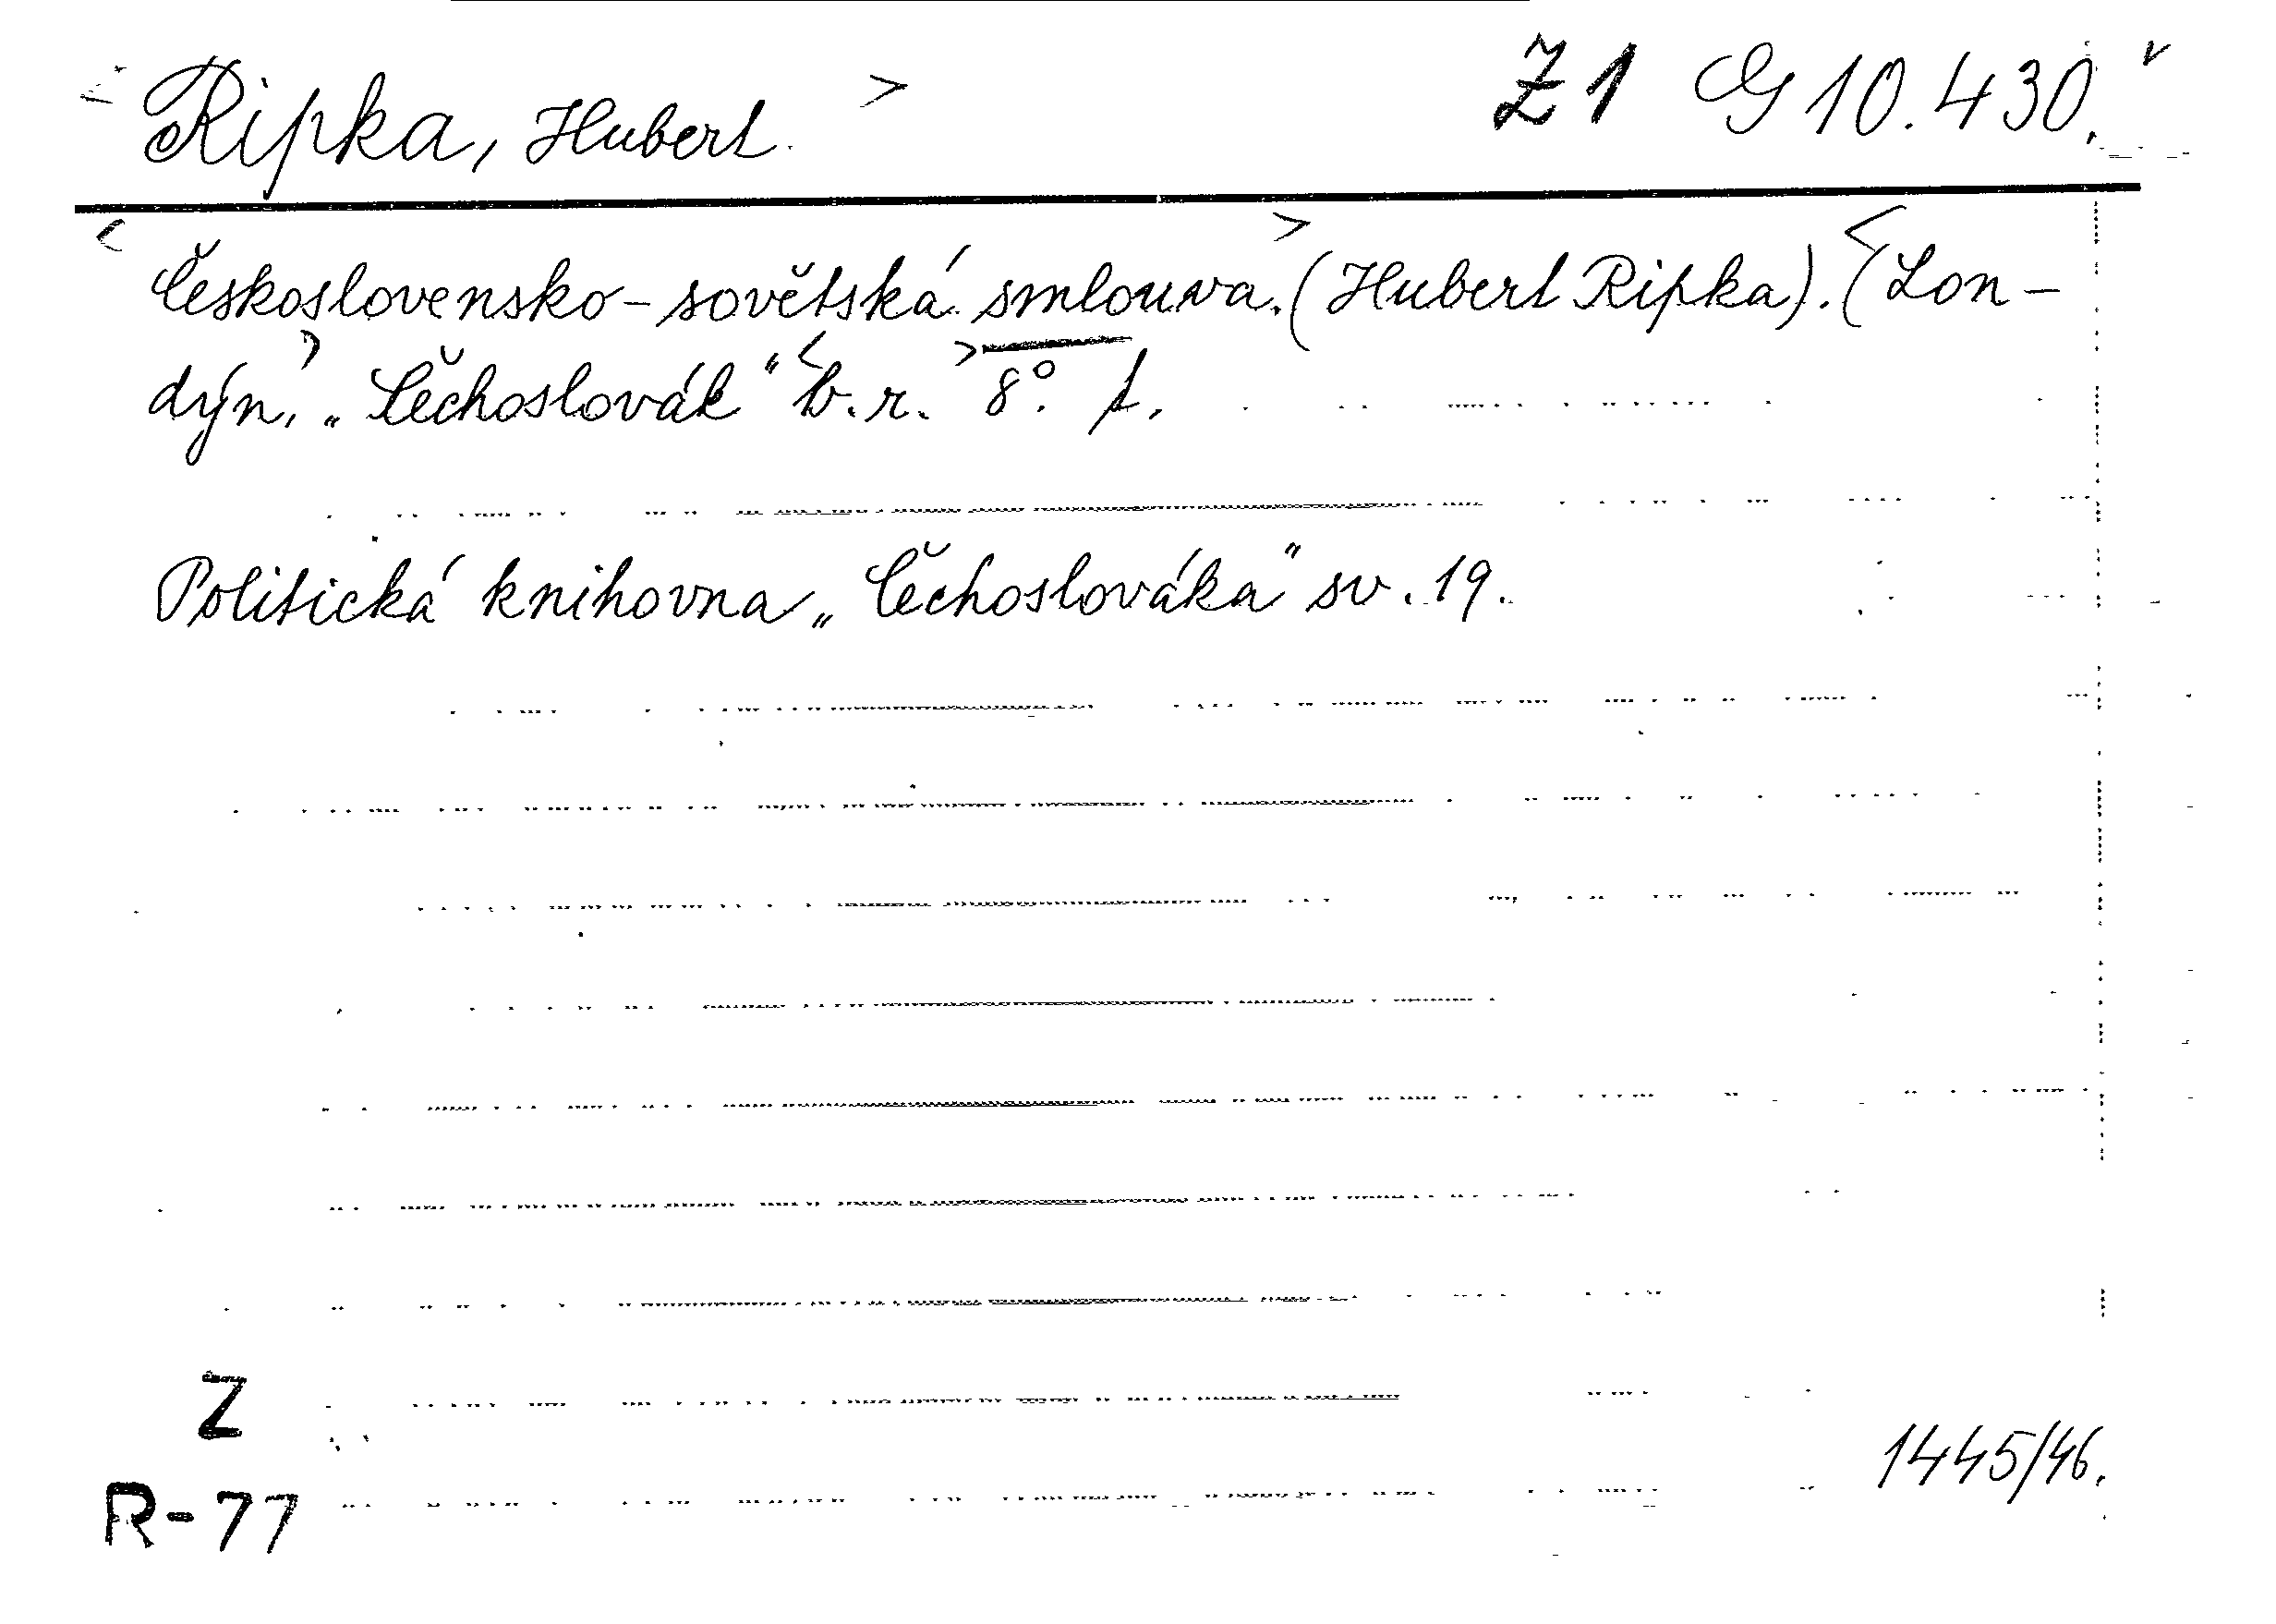 Ripka, Hubert. Z 1 G 10.430.
Československo-sovětská smlouva. (Hubert Ripka). (Lon-
dýn, „Čechoslovák" b.r. 8°. f.
Politická knihovna „Čechoslováka" sv. 19.
Z
1445/46.
R-77